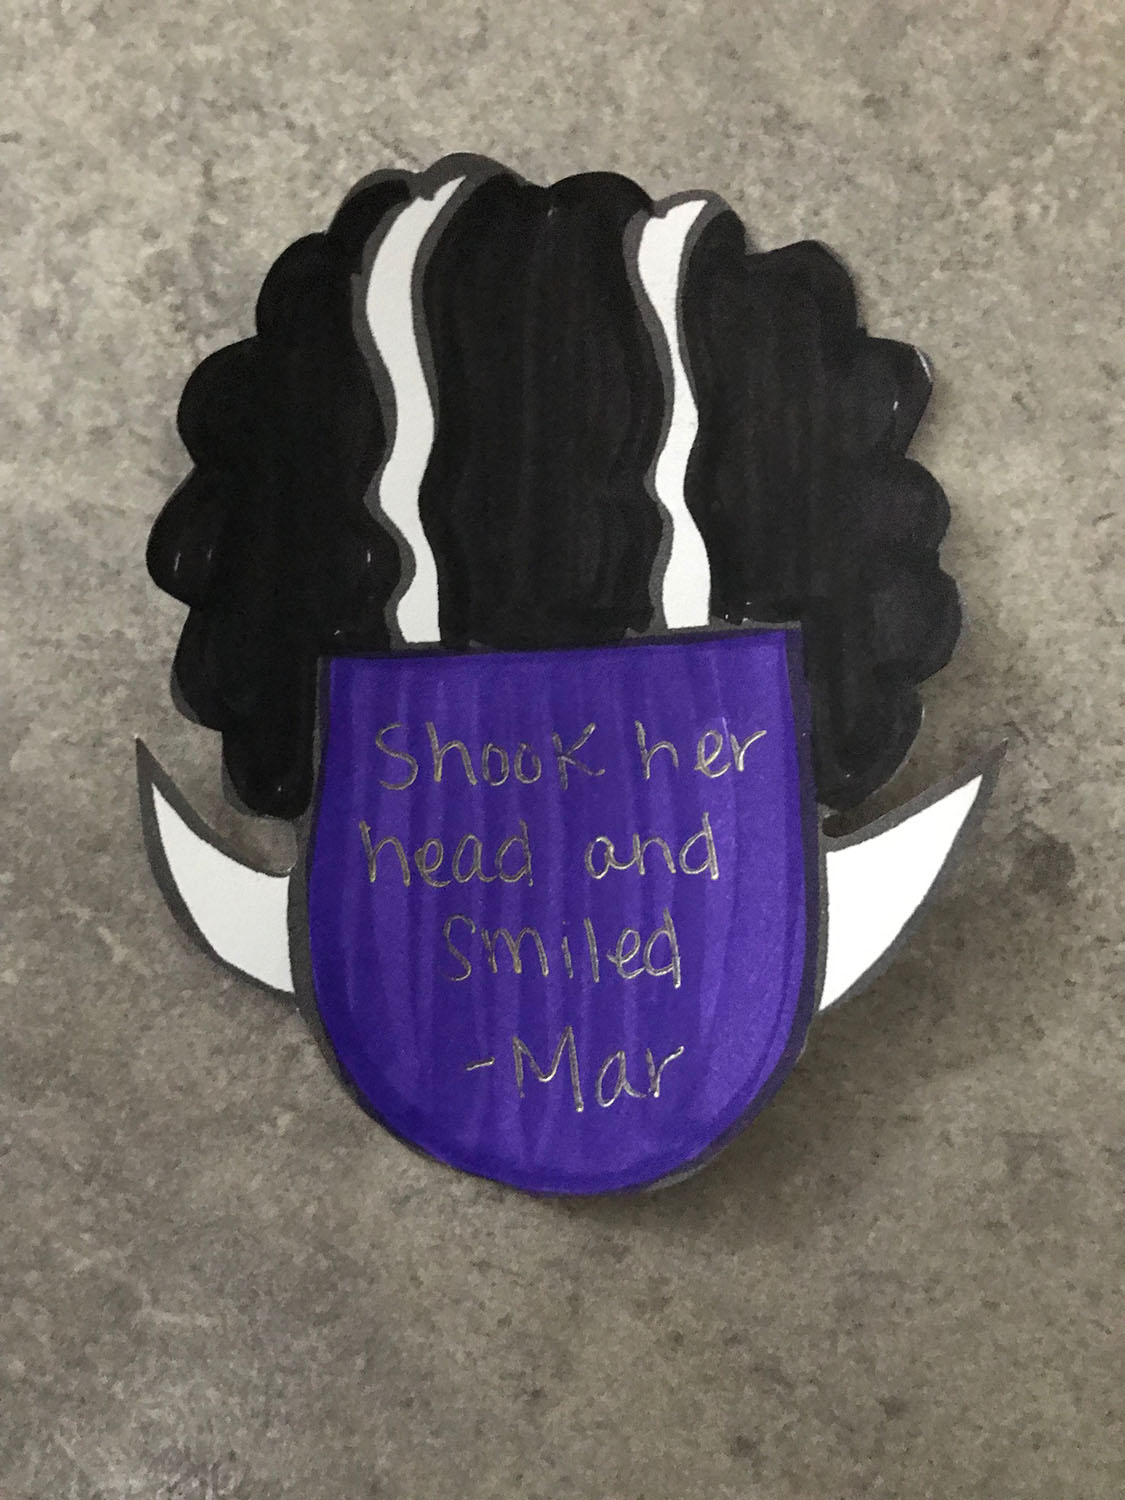 Shook her
head and
Smiled
-Mar